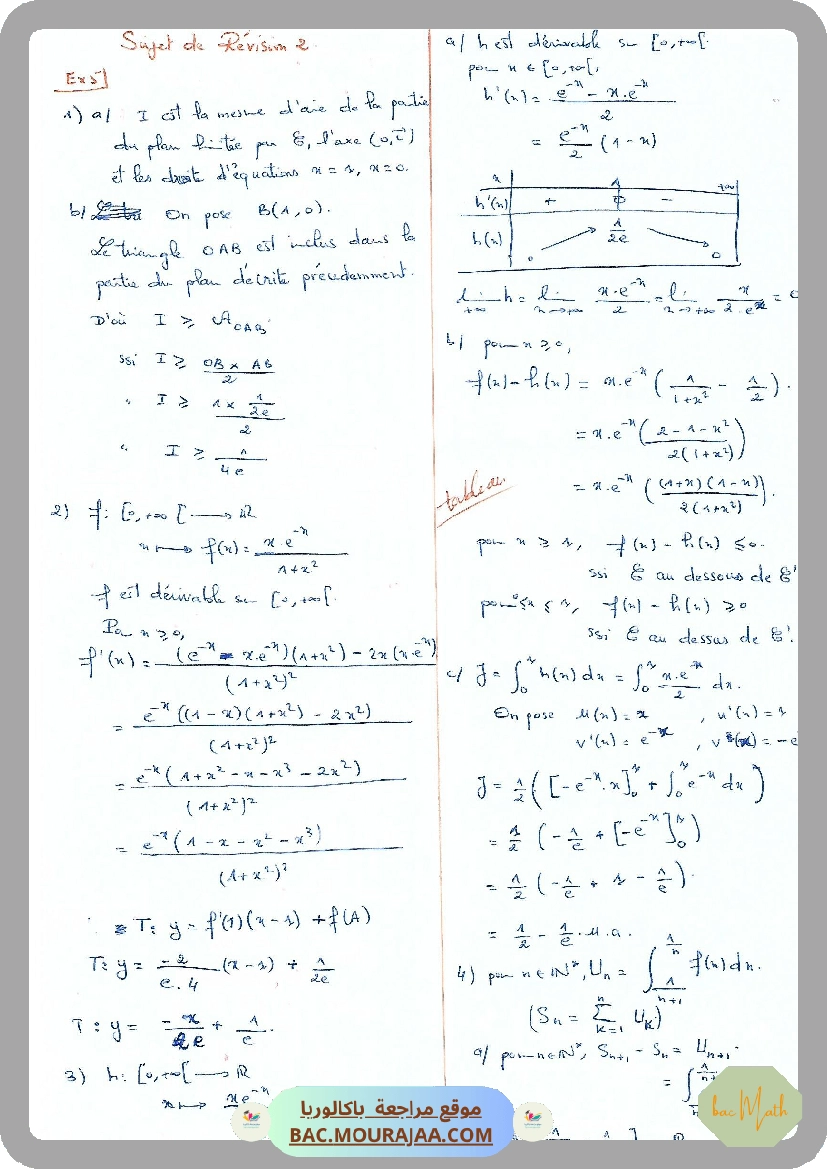 Sujet de Révision 2
Ex5
1) a/ I est la mesure d'aire de la partie
du plan limitée par C, l'axe (0,i)
et les droites d'équations x = 1, x = 0.
b/ On pose B(1,0).
Le triangle OAB est inclus dans la
partie du plan décrite précedemment.
D'où I ≥ A_OAB
ssi I ≥ (OB × AB)/2
" I ≥ (1 × 1/2e)/2
" I ≥ 1/4e
2) f: [0,+∞[ → ℝ
x ↦ f(x) = x.e^-x/(1+x²)
f est dérivable sur [0,+∞[.
Pour x ≥ 0,
f'(x) = ((e^-x - x.e^-x)(1+x²) - 2x(x e^-x))/(1+x²)²
= e^-x((1-x)(1+x²) - 2x²)/(1+x²)²
= e^-x(1+x²-x-x³-2x²)/(1+x²)²
= e^-x(1-x-x²-x³)/(1+x²)²
T: y = f'(1)(x-1) + f(1)
T: y = -2/(e.4) (x-1) + 1/2e
T: y = -x/2e + 1/e.
3) h: [0,+∞[ → ℝ
x ↦ xe^-x
a/ h est dérivable sur [0,+∞[.
pour x ∈ [0,+∞[,
h'(x) = (e^-x - x.e^-x)/2
= e^-x/2 (1-x)
x 1 +∞
h'(x) + 0 -
h(x) 0 1/2e 0
lim h = lim x.e^-x/2 = lim x/(2.e^x) = 0
+∞ x→+∞ x→+∞
b/ pour x ≥ 0,
f(x) - h(x) = x.e^-x (1/(1+x²) - 1/2).
= x.e^-x ((2-1-x²)/(2(1+x²)))
= x.e^-x ((1+x)(1-x)/(2(1+x²))).
tableau
pour x ≥ 1, f(x) - h(x) ≤ 0.
ssi C au dessous de C'
pour 0≤x≤1, f(x) - h(x) ≥ 0
ssi C au dessus de C'.
c/ J = ∫₀¹ h(x) dx = ∫₀¹ x.e^-x/2 dx.
On pose u(x) = x , u'(x) = 1
v'(x) = e^-x , v(x) = -e
J = 1/2 ([-e^-x.x]₀¹ + ∫₀¹ e^-x dx)
= 1/2 (-1/e + [-e^-x]₀¹)
= 1/2 (-1/e + 1 - 1/e).
= 1/2 - 1/e . u.a.
4) pour n ∈ ℕ*, Un = ∫_{1/(n+1)}^{1/n} f(x) dx.
(Sn = Σ_{k=1}^{n} Uk)
a/ pour n∈ℕ*, Sn+1 - Sn = Un+1.
= ∫
bacMath
موقع مراجعة باكالوريا
BAC.MOURAJAA.COM